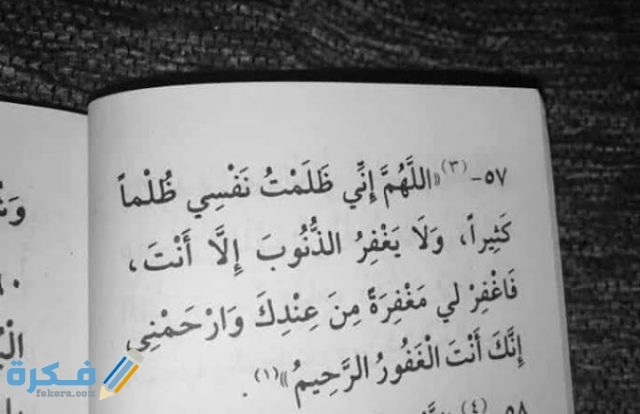 ٥٧-(٣) «اللَّهُمَّ إِنِّي ظَلَمْتُ نَفْسِي ظُلْماً
كَثِيراً، وَلَا يَغْفِرُ الذُّنُوبَ إِلَّا أَنْتَ،
فَاغْفِرْ لي مَغْفِرَةً مِنَ عِنْدِكَ وَارْحَمْنِي،
إِنَّكَ أَنْتَ الْغَفُورُ الرَّحِيمُ»(١).
٥٨ -(٤)
فكرة
fekera.com